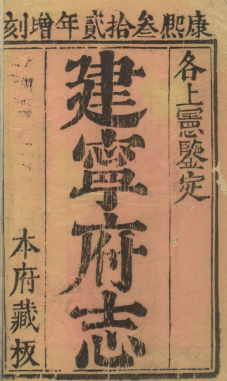 康熙叁拾貳年增刻
各上憲鑒定
建寧府志
本府藏板